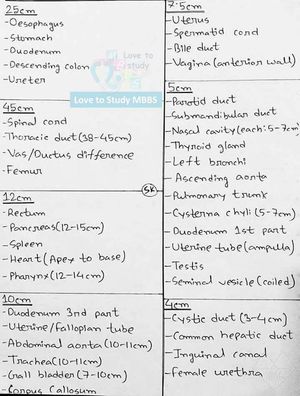 25cm
-Oesophagus
-Stomach
-Duodenum
-Descending colon
-Ureter
Love to
study
Love to Study MBBS
45cm
-Spinal cord
-Thoracic duct (38-45cm)
-Vas/Ductus difference
-Femur
12cm
-Rectum
-Pancreas(12-15cm)
-Spleen
-Heart (Apex to base)
-Pharynx (12-14cm)
10cm
-Duodenum 3rd part
-Uterine/Fallopian tube
-Abdominal aorta (10-11cm)
-Trachea(10-11cm)
-Gall bladder (7-10cm)
-Corpus Callosum
SK
7.5cm
-Uterus
-Spermatid cord
-Bile duct
-Vagina (anterior wall)
5cm
-Parotid duct
-Submandibular duct
-Nasal cavity (each:5-7cm)
-Thyroid gland
-Left bronchi
-Ascending aorta
-Pulmonary trunk
-Cysterna chyli (5-7cm)
-Duodenum 1st part
-Uterine tube (ampulla)
-Testis
-Seminal vesicle (coiled)
4cm
-Cystic duct (3-4cm)
-Common hepatic duct
-Inguinal canal
-Female urethra